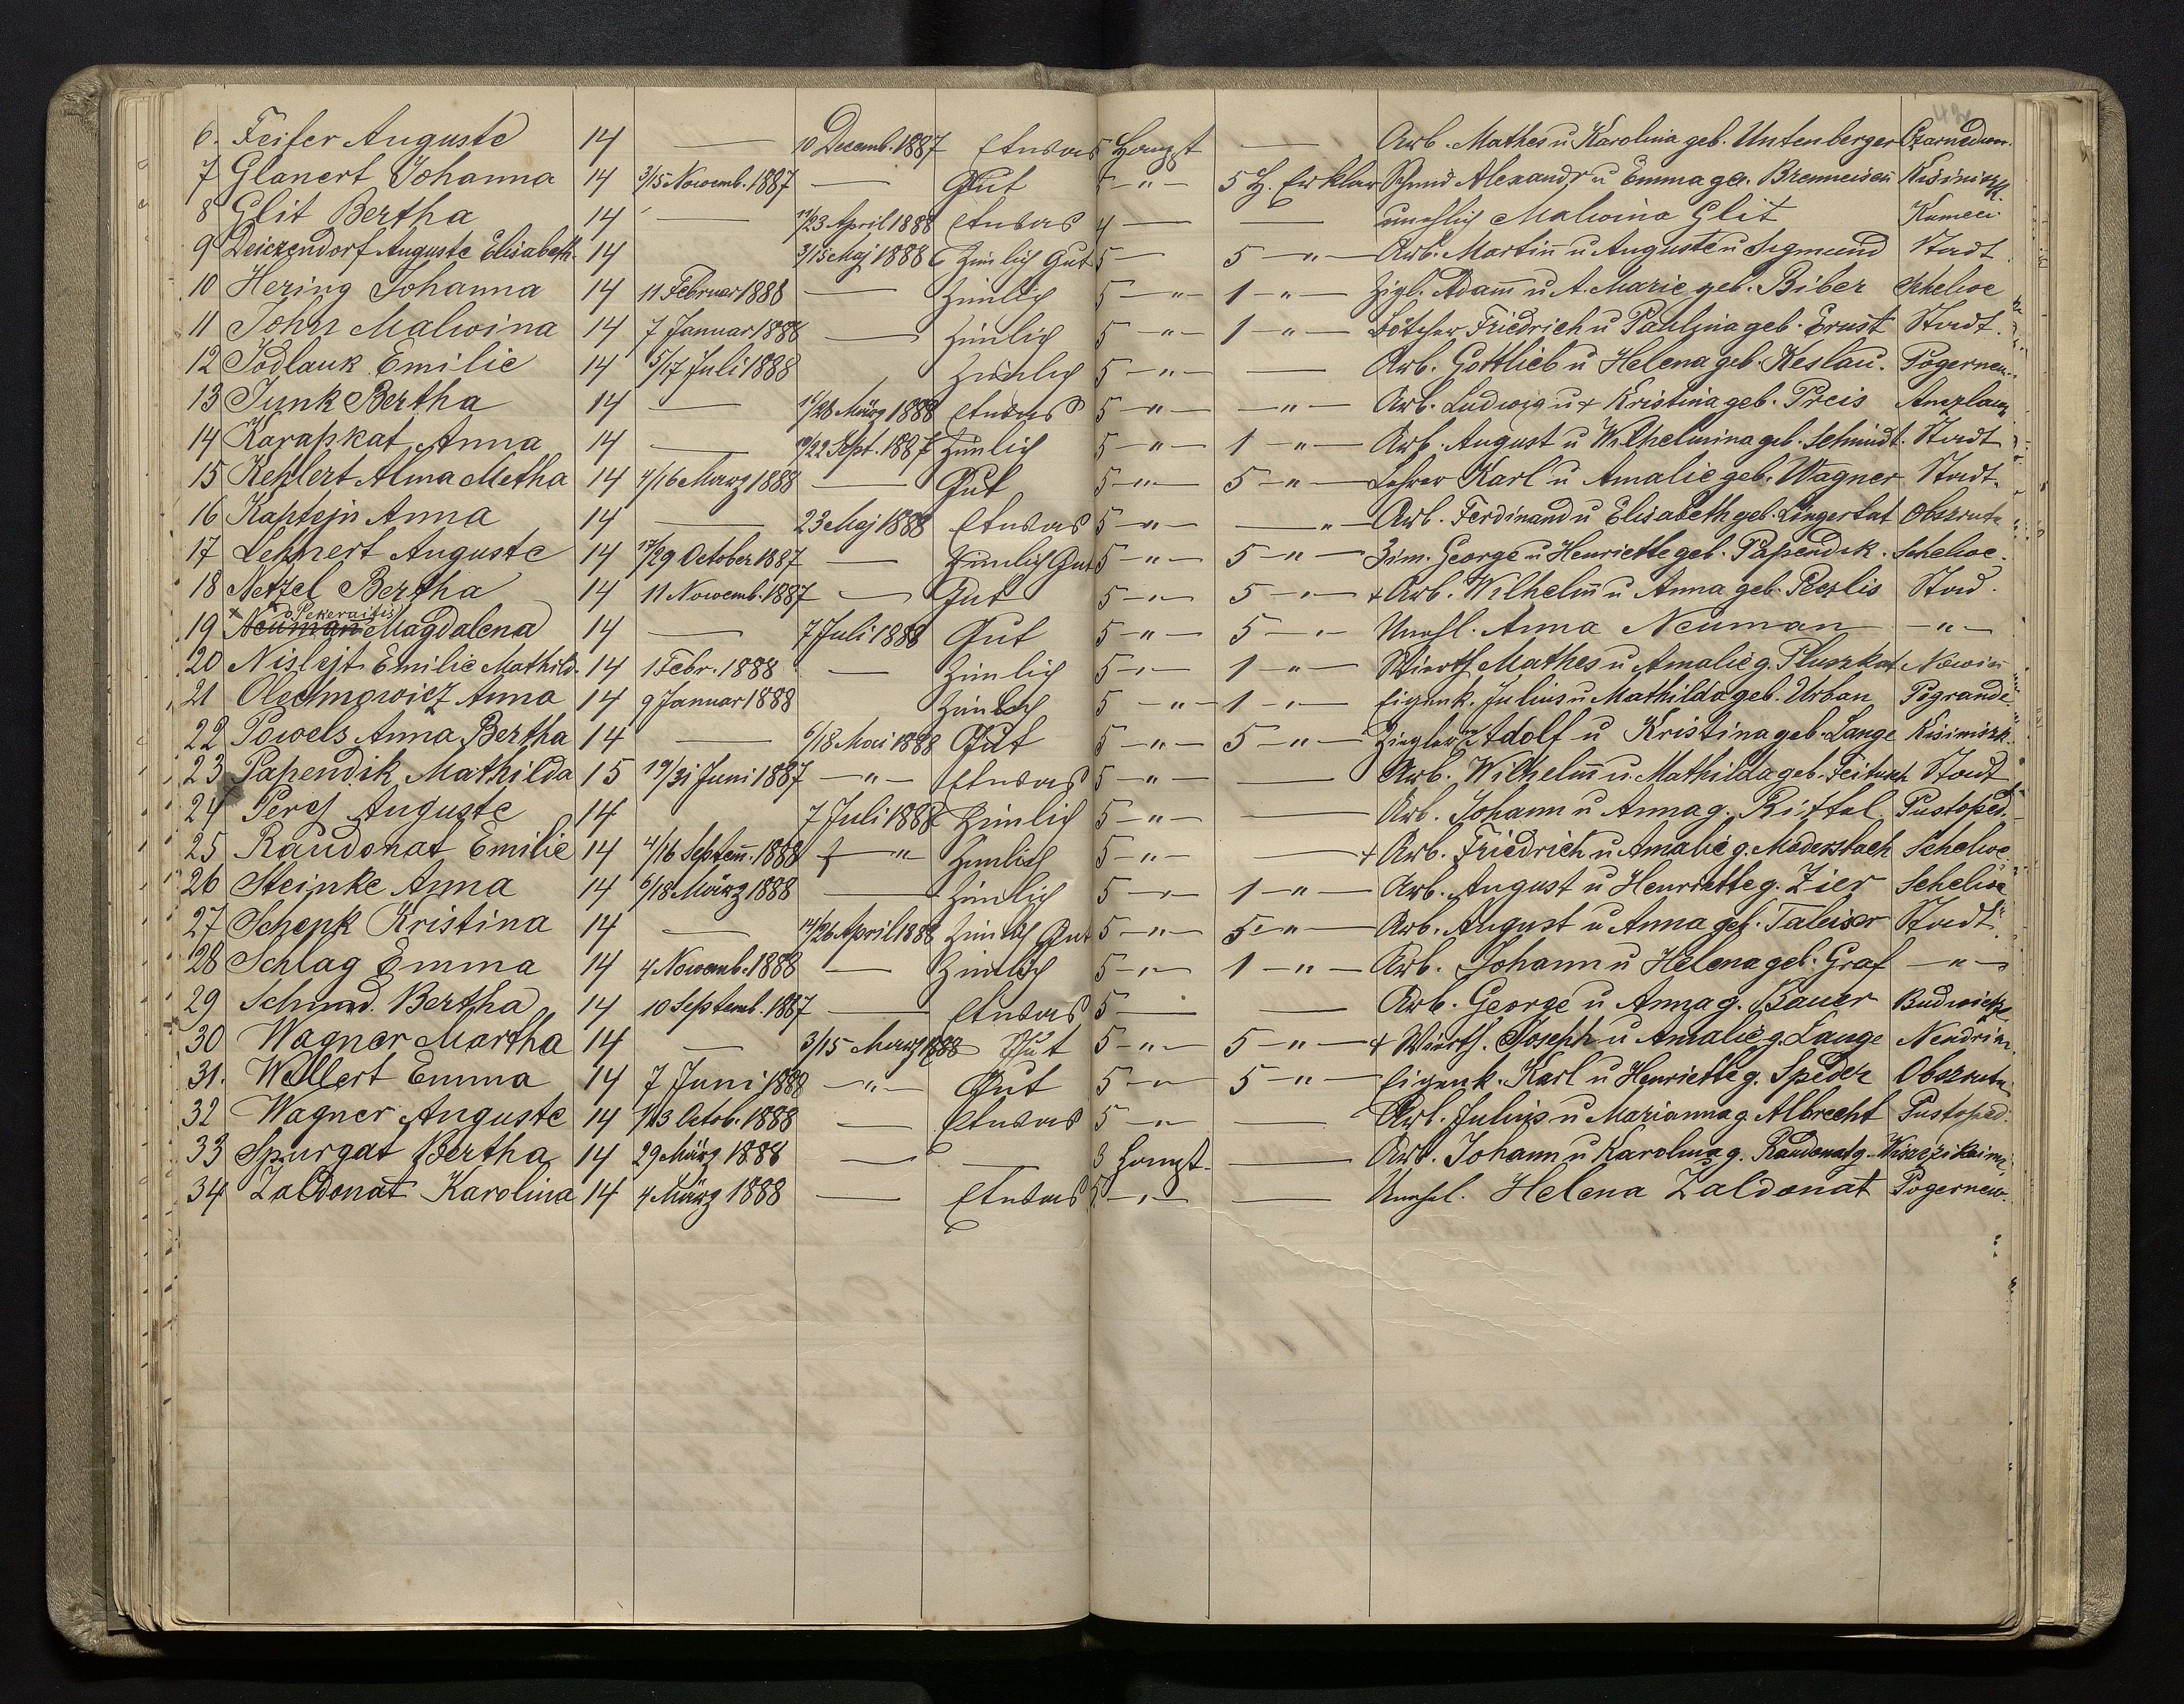 6. Feiler Auguste 14 — 10 Decemb. 1887 Etwas 5 Haupt — Arb. Mathes u Karolina geb. Untenberger Czarnedum.
7 Glanert Johanna 14 3/15 Nowemb. 1887 — Gut 5 -"- 5 H. Erklar Schmid Alexandr u Emma geb. Brenneisen Kisiniszk
8 Glit Bertha 14 — 11/23 April 1888 Etwas 4 — — unehlich Malwina Glit Kumeci
9 Deiczendorf Auguste Elisabeth 14 3/15 Maj 1888 Zimlich Gut 5 — 5 -"- Arb. Martin u Auguste u Sigmund Stadt
10 Hering Johanna 14 11 Februar 1888 — Zimlich 5 -"- 1 -"- Zigl. Adam u A. Marie geb. Biber Schelwe
11 John Malwina 14 7 Januar 1888 — Zimlich 5 -"- 1 -"- Bötcher Friedrich u Paulina geb. Ernst Stadt.
12 Jodlauk Emilie 14 5/17 Juli 1888 Zimlich 5 -"- — Arb. Gottlieb u Helena geb. Keslau. Pogernew.
13 Junk Bertha 14 — 16/28 März 1888 Etwas 5 -"- -"- Arb. Ludwig u + Kristina geb. Preis
14 Karapkat Anna 14 — 10/22 Sept. 1887 Zimlich 5 -"- 1 -"- Arb. August u Wilhelmina geb. Schmidt. Stadt
15 Kehlert Alma Metha 14 4/16 Marz 1888 — Gut 5 -"- 5 -"- Lehrer Karl u Amalie geb. Wagner Stadt.
16 Kaptejn Anna 14 — 23 Maj 1888 Etwas 5 -"- -"- Arb. Ferdinand u Elisabeth geb. Lingertat Obszrute
17 Lehnert Auguste 14 17/29 October 1887 — Zimlich Gut 5 -"- 5 -"- Zim. George u Henriette geb. Papendik. Schelwe.
18 Netzel Bertha 14 11 Nowemb. 1887 — Gut 5 -"- 5 -"- + Arb. Wilhelm u Anna geb. Peczlis Stad.
x Pekeraitis
19 Neuman Magdalena 14 — 7 Juli 1888 Gut 5 -"- 5 -"- Unehl. Anna Neuman -"-
20 Nislejt Emilie Mathild. 14 1 Febr. 1888 — Zimlich 5 -"- 1 " Wierth Mathes u Amalie g. Pluszkat Nowin
21 Olechnowicz Anna 14 9 Januar 1888 Zimlich 5 -"- 1 -"- Eigenk. Julius u Mathilda geb. Urban Pogrande
22 Powels Anna Bertha 14 — 6/18 Mai 1888 Gut 5 -"- 5 -"- Ziegler Adolf u Kristina geb. Lange Kisiniszk.
23 Papendik Mathilda 15 19/31 Juni 1887 -"- Etwas 5 -"- — Arb. Wilhelm u. Mathilda geb. Feitusch Stadt
24 Percz Auguste 14 7 Juli 1888 Zimlich 5 -"- — Arb. Johann u Anna g. Rittel. Pustoped.
25 Raudonat Emilie 14 4/16 Septem. 1888 -"- Zimlich 5 -"- — + Arb. Friedrich u Amalie g. Moderstach Schelwe
26 Steinke Anna 14 6/18 März 1888 — Zimlich 5 -"- 1 -"- Arb. August u Henriette g. Zier Schelwe
27 Schenk Kristina 14 — 14/26 April 1888 Zimlich Gut 5 -"- 5 -"- Arb. August u Anna geb. Taleiser Stadt
28 Schlag Emma 14 4 Nowemb. 1888 — Zimlich 5 -"- 1 -"- Arb. Johann u Helena geb. Graf -"-
29 Schmid. Bertha 14 10 Septemb. 1887 — Etwas 5 — — Arb. George u Anna g. Bauer Budwietz
30 Wagner Martha 14 — 3/15 Merz 1888 Gut 5 -"- 5 -"- + Wierth. Joseph u Amalie g. Lange Nendrin.
31. Wellert Emma 14 7 Juni 1888 -"- Gut 5 -"- 5 -"- Eigenk. Karl u Henriette g. Speder Obszrute
32 Wagner Auguste 14 1/13 Octob. 1888 — Etwas 5 -"- — Arb. Julius u Marianna g. Albrecht Pustoped.
33 Spurgat Bertha 14 29 März 1888 — — 3 Haupt — Arb. Johann u Karolina g. Raudonat
34 Zaldonat Karolina 14 4 März 1888 — Etwas 5 -"- — Unehl. Helena Zaldonat Pogernew.